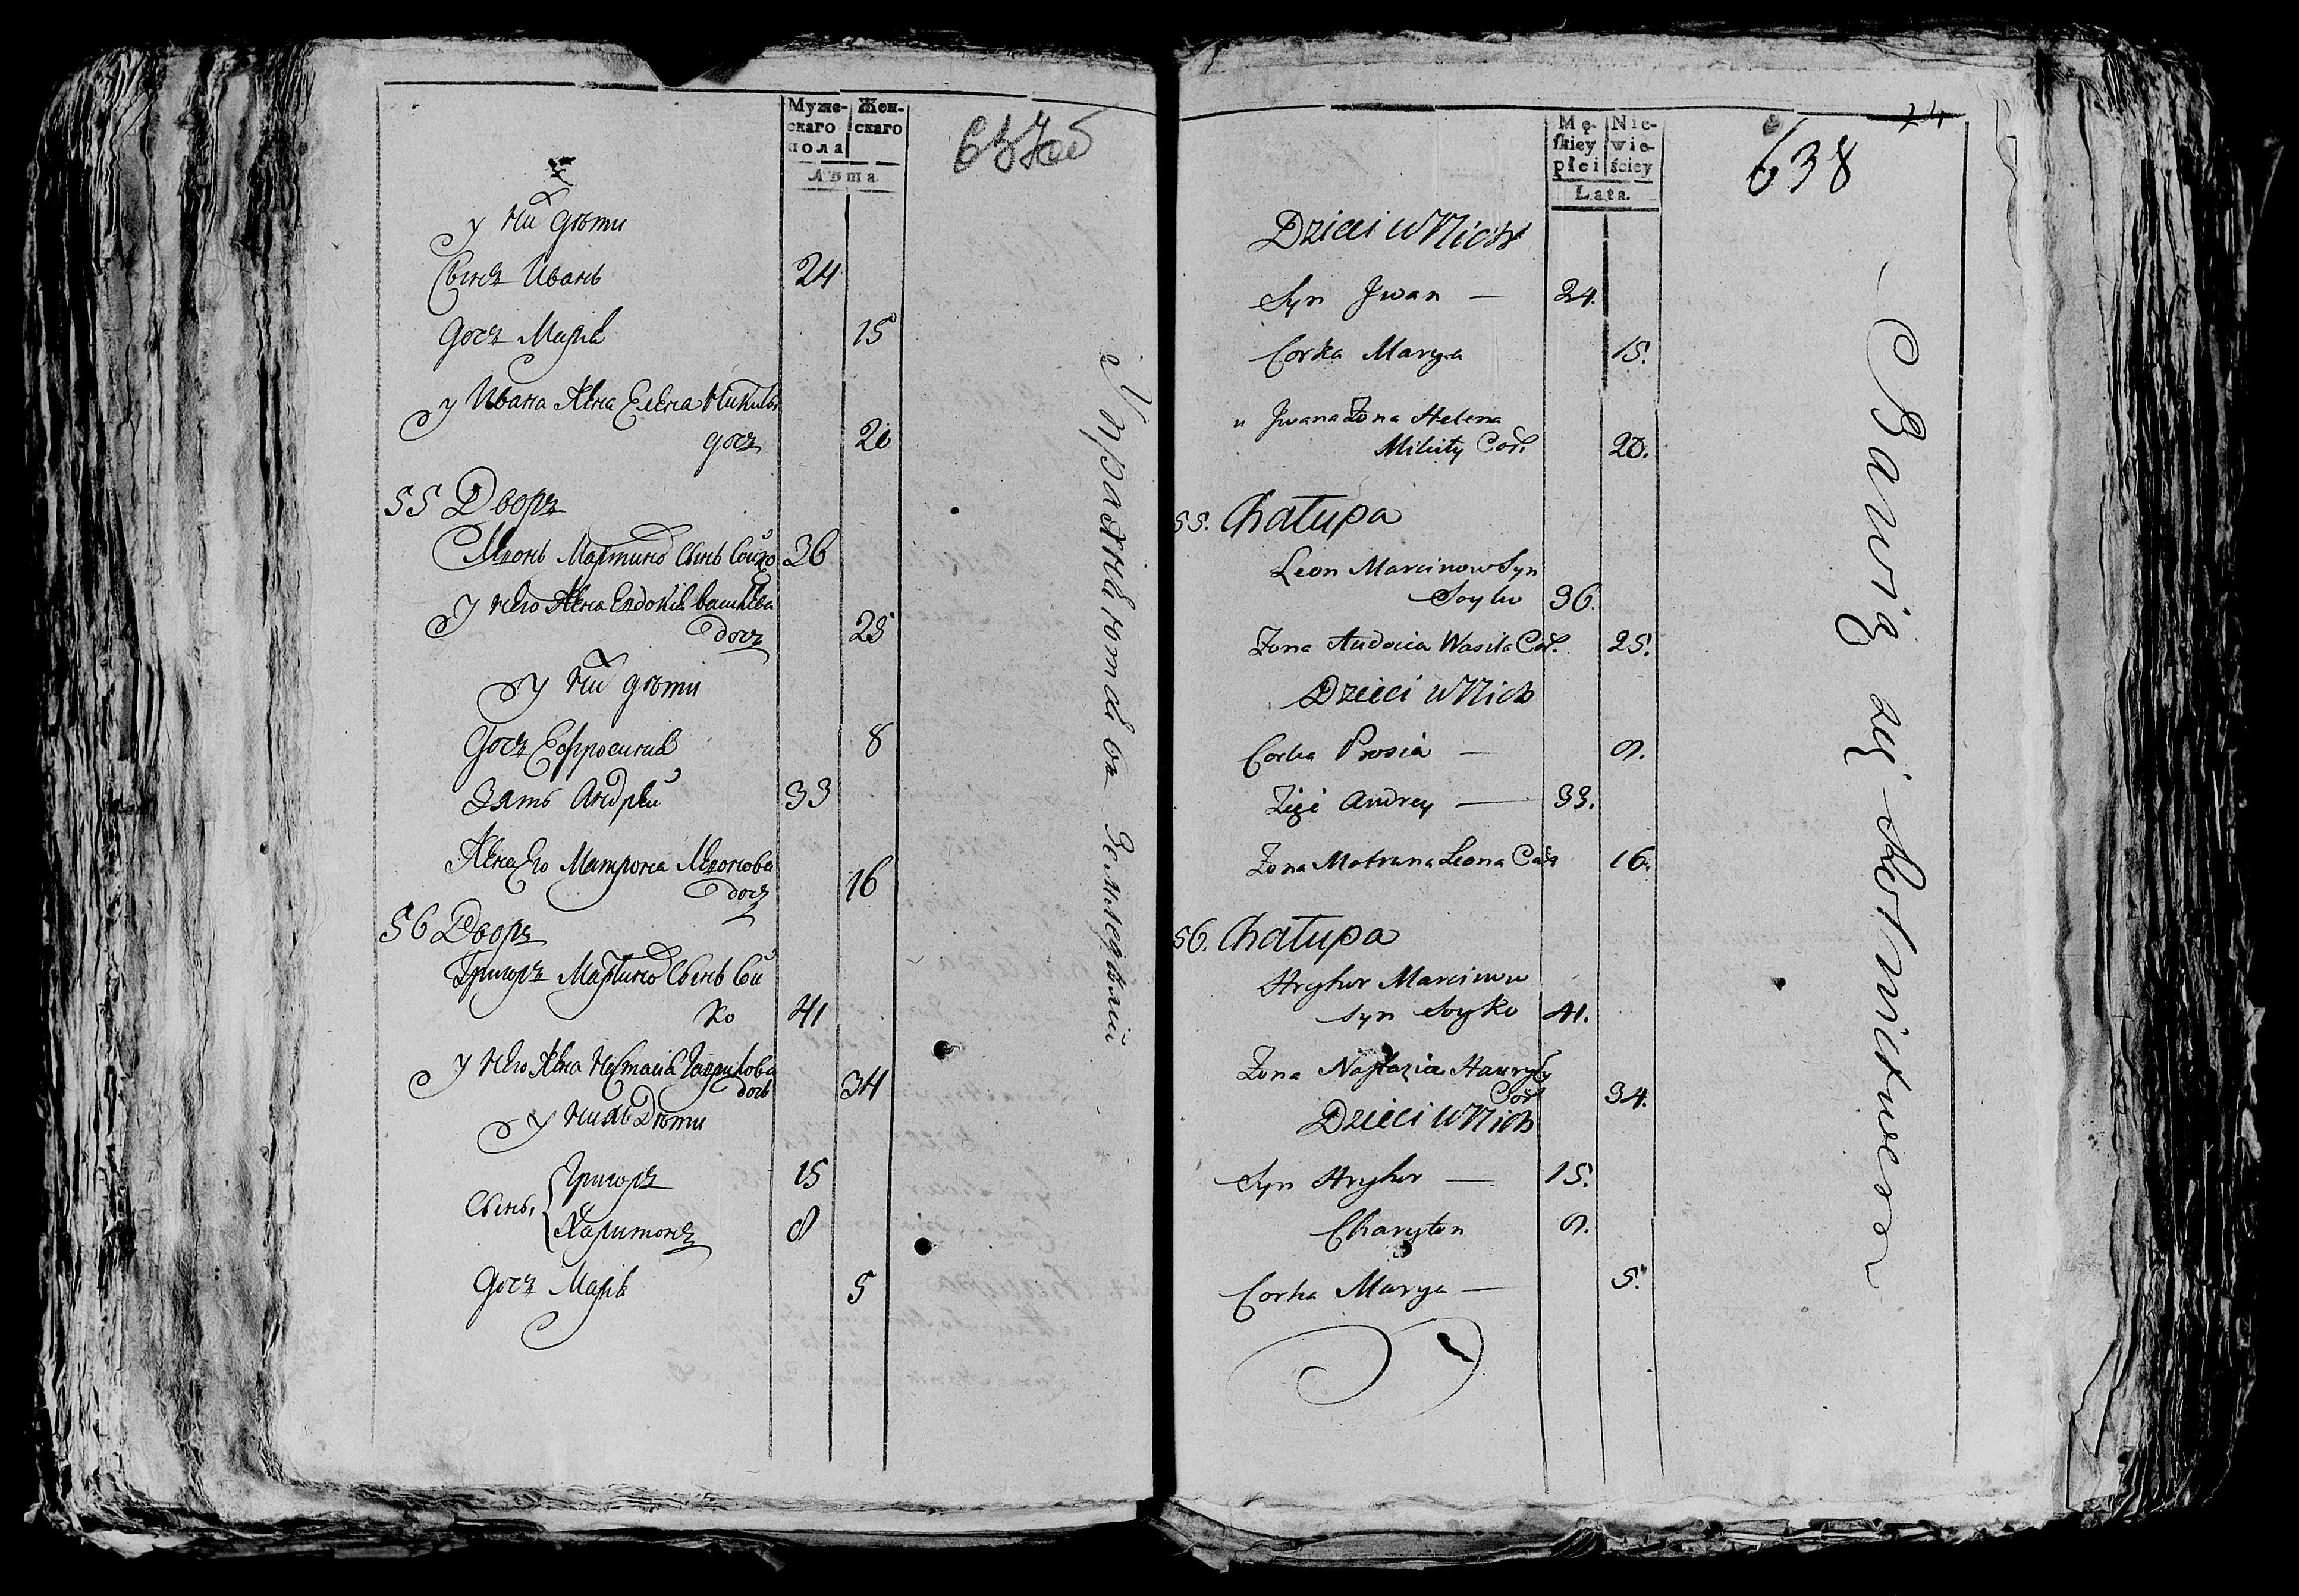 Муже-
скаго
пола
Жен-
скаго
Лѣта
у них дѣти
Сынъ Иванъ 24
дочъ Марія 15
у Ивана жена Елена Никиты
дочъ 20
55 Дворъ
Леонъ Мартиновъ сынъ Сойко 36
у него жена Евдокія Васильева
дочъ 25
у них дѣти
дочъ Ефросинія 8
Зять Андрей 33
Жена его Матрона Леонова
дочъ 16
56 Дворъ
Григоръ Мартиновъ сынъ Сой
ко 41
у него жена Настасія Гаврилова
дочь 34
у нихъ Дѣти
Сынъ, Григоръ 15
Харитонъ 8
дочъ Марія 5
Упражняются въ Земледѣлій
Mę-
skiey
płci
Nie-
wie-
ściey
Lata.
638
Dzieci u Nich
Syn Jwan — 24.
Corka Marya 15.
u Jwana Żona Helena
Mikity Cor. 20.
55. Chałupa
Leon Marcinow Syn
Soyko 36.
Żona Audocia Wasila Cor. 25.
Dzieci u Nich
Corka Prosia — 9.
Zięć Andrey — 33.
Żona Motruna Leona Cor. 16.
56. Chałupa
Hryhor Marcinow
Syn Soyko 41.
Żona Nastazia Hawryły
Cor 34.
Dzieci u Nich
Syn Hryhor — 15.
Charyton 9.
Corka Marya — 5.
Bawią się Rolnictwem